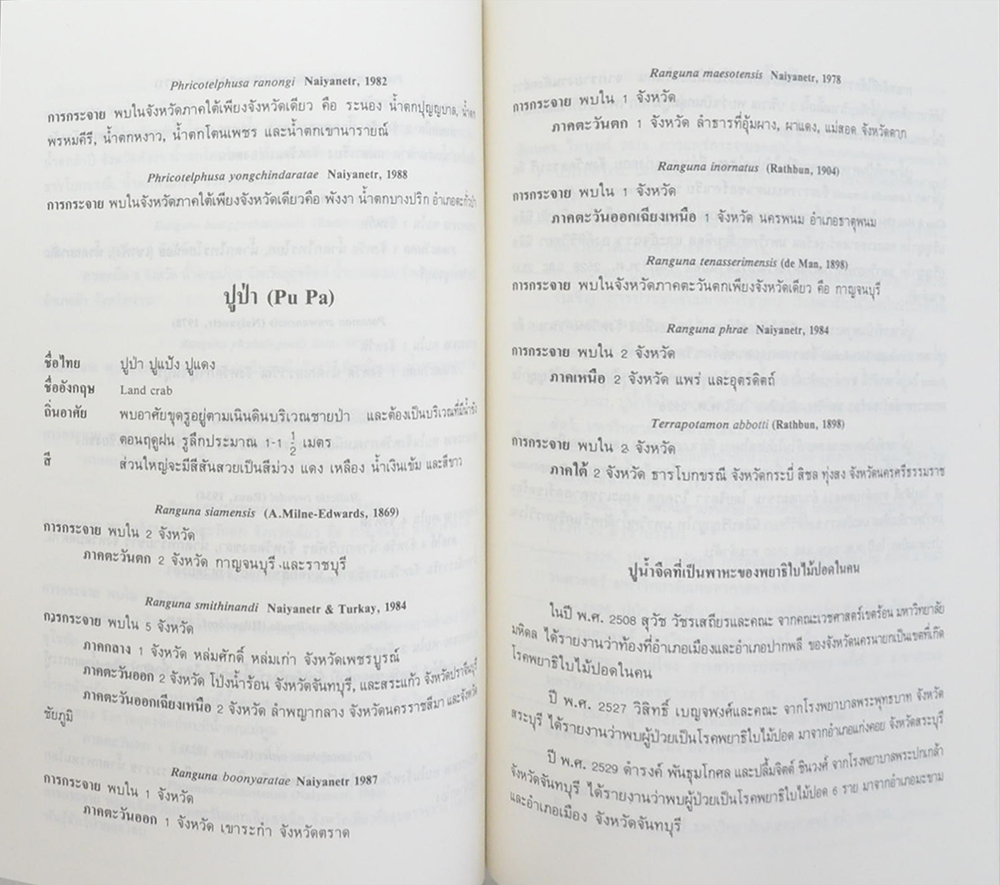 Phricotelphusa ranongi Naiyanetr, 1982
การกระจาย พบในจังหวัดภาคใต้เพียงจังหวัดเดียว คือ ระนอง น้ำตกปุญญบาล, น้ำตก
พรหมคีรี, น้ำตกหงาว, น้ำตกโตนเพชร และน้ำตกเขานารายณ์
Phricotelphusa yongchindaratae Naiyanetr, 1988
การกระจาย พบในจังหวัดภาคใต้เพียงจังหวัดเดียวคือ พังงา น้ำตกบางปริก อำเภอตะกั่วป่า
ปูป่า (Pu Pa)
ชื่อไทย ปูป่า ปูแป้ง ปูแดง
ชื่ออังกฤษ Land crab
ถิ่นอาศัย พบอาศัยขุดรูอยู่ตามเนินดินบริเวณชายป่า และต้องเป็นบริเวณที่น้ำขัง
ตอนฤดูฝน รูลึกประมาณ 1-1 1/2 เมตร
สี ส่วนใหญ่จะมีสีสันสวยเป็นสีม่วง แดง เหลือง น้ำเงินเข้ม และสีขาว
Ranguna siamensis (A.Milne-Edwards, 1869)
การกระจาย พบใน 2 จังหวัด
ภาคตะวันตก 2 จังหวัด กาญจนบุรี และราชบุรี
Ranguna smithinandi Naiyanetr & Turkay, 1984
การกระจาย พบใน 5 จังหวัด
ภาคกลาง 1 จังหวัด หล่มศักดิ์ หล่มเก่า จังหวัดเพชรบูรณ์
ภาคตะวันออก 2 จังหวัด โป่งน้ำร้อน จังหวัดจันทบุรี, และสระแก้ว จังหวัดปราจีนบุรี
ภาคตะวันออกเฉียงเหนือ 2 จังหวัด ลำพญากลาง จังหวัดนครราชสีมา และจังหวัด
ชัยภูมิ
Ranguna boonyaratae Naiyanetr 1987
การกระจาย พบใน 1 จังหวัด
ภาคตะวันออก 1 จังหวัด เขาระกำ จังหวัดตราด
Ranguna maesotensis Naiyanetr, 1978
การกระจาย พบใน 1 จังหวัด
ภาคตะวันตก 1 จังหวัด ลำธารที่อุ้มผาง, ผาแดง, แม่สอด จังหวัดตาก
Ranguna inornatus (Rathbun, 1904)
การกระจาย พบใน 1 จังหวัด
ภาคตะวันออกเฉียงเหนือ 1 จังหวัด นครพนม อำเภอธาตุพนม
Ranguna tenasserimensis (de Man, 1898)
การกระจาย พบในจังหวัดภาคตะวันตกเพียงจังหวัดเดียว คือ กาญจนบุรี
Ranguna phrae Naiyanetr, 1984
การกระจาย พบใน 2 จังหวัด
ภาคเหนือ 2 จังหวัด แพร่ และอุตรดิตถ์
Terrapotamon abbotti (Rathbun, 1898)
การกระจาย พบใน 2 จังหวัด
ภาคใต้ 2 จังหวัด ธารโบกขรณี จังหวัดกระบี่ สิชล ทุ่งสง จังหวัดนครศรีธรรมราช
ปูน้ำจืดที่เป็นพาหะของพยาธิใบไม้ปอดในคน
ในปี พ.ศ. 2508 สุวัช วัชรเสถียรและคณะ จากคณะเวชศาสตร์เขตร้อน มหาวิทยาลัย
มหิดล ได้รายงานว่าท้องที่อำเภอเมืองและอำเภอปากพลี ของจังหวัดนครนายกเป็นเขตที่เกิด
โรคพยาธิใบไม้ปอดในคน
ปี พ.ศ. 2527 วิสิทธิ์ เบญจพงศ์และคณะ จากโรงพยาบาลพระพุทธบาท จังหวัด
สระบุรี ได้รายงานว่าพบผู้ป่วยเป็นโรคพยาธิใบไม้ปอด มาจากอำเภอแก่งคอย จังหวัดสระบุรี
ปี พ.ศ. 2529 ดำรงค์ พันธุมโกศล และปลื้มจิตต์ ชินวงศ์ จากโรงพยาบาลพระปกเกล้า
จังหวัดจันทบุรี ได้รายงานว่าพบผู้ป่วยเป็นโรคพยาธิใบไม้ปอด 6 ราย มาจากอำเภอมะขาม
และอำเภอเมือง จังหวัดจันทบุรี